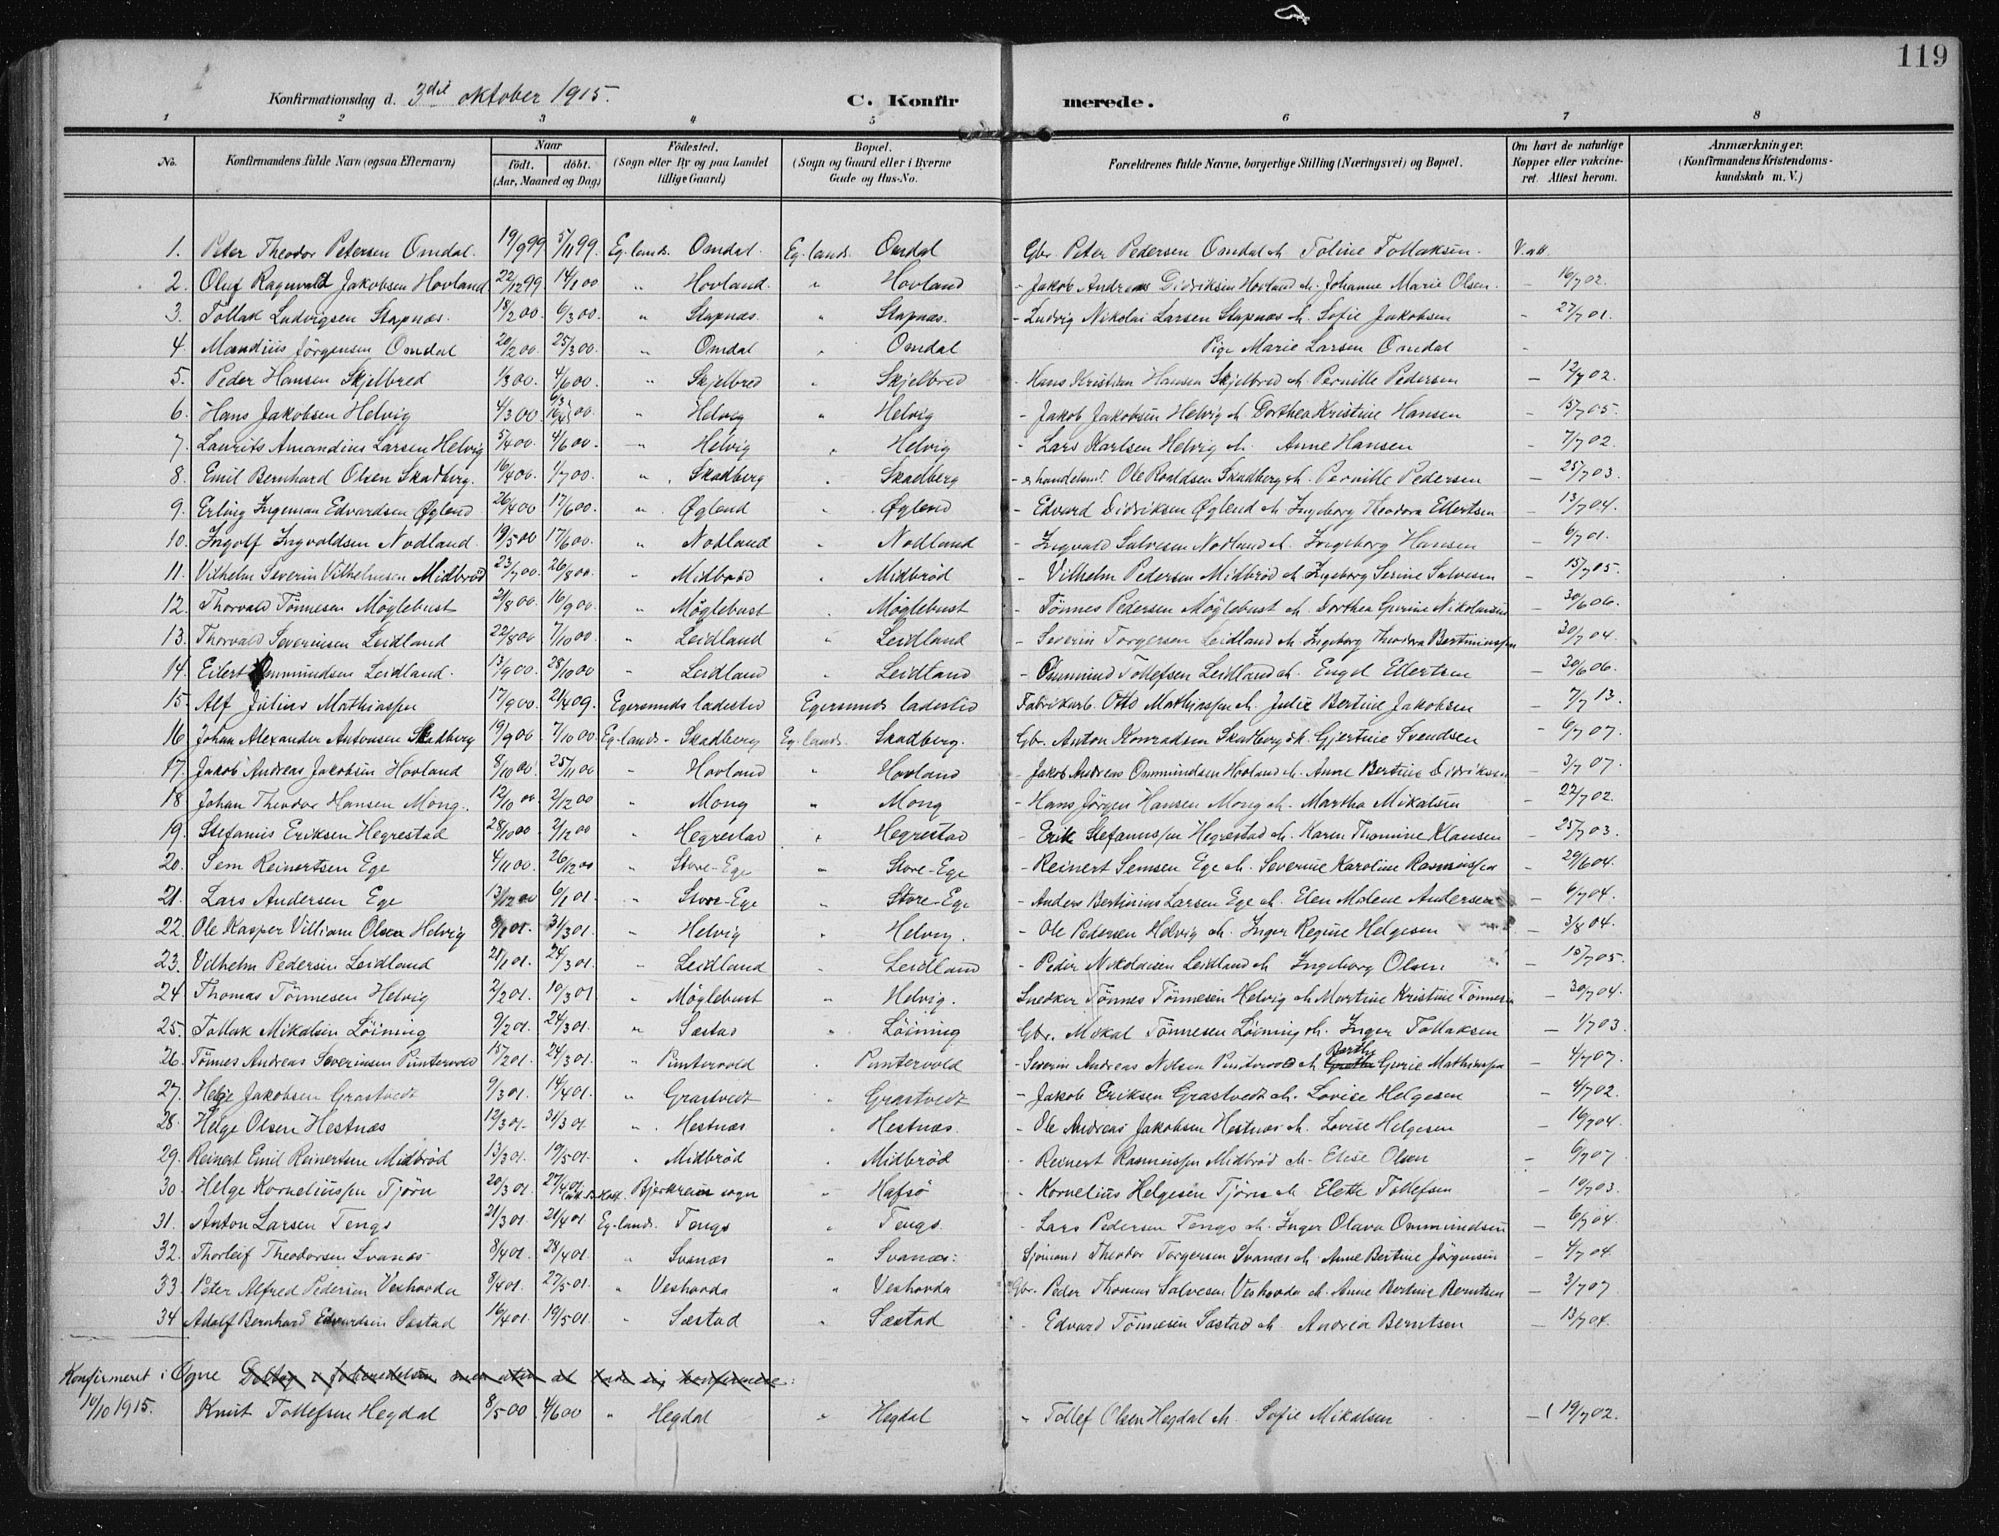 119
Konfirmationsdag d. 3die oktober 1915. C. Konfirmerede.
1 2 3 4 5 6 7 8
No. Konfirmandens fulde Navn (ogsaa Efternavn) Naar født. døbt. (Aar, Maaned og Dag) Fødested. (Sogn eller By og paa Landet tillige Gaard) Bopæl. (Sogn og Gaard eller i Byerne Gade og Hus-No. Forældrenes fulde Navne, borgerlige Stilling (Næringsvei) og Bopæl. Om havt de naturlige Kopper eller vaccineret. Attest herom. Anmærkninger. (Konfirmandens Kristendomskundskab m. V.)
1. Peter Theodor Petersen Omdal. 19/9 99 5/11 99 Eg.lands. Omdal. Eg.lands. Omdal Gbr. Peter Pedersen Omdal & Toline Tollaksen. V. att.
2. Oluf Ragnvald Jakobsen Hovland 22/12 99 14/1 00 " Hovland. " Hovland - Jakob Andreas Didriksen Hovland & Johanne Marie Olsen. - 16/7 02.
3. Tollak Ludvigsen Stapnæs. 18/2 00. 6/3 00. " Stapnæs. " Stapnæs. - Ludvig Nikolai Larsen Stapnæs & Sofie Jakobsen - 27/7 01.
4. Mandius Jörgensen Omdal 20/2 00. 25/3 00. " Omdal " Omdal Pige Marie Larsen Omdal -
5. Peder Hansen Skjelbred 1/3 00. 4/6 00. " Skjelbred " Skjelbred - Hans Kristian Hansen Skjelbred & Pernille Pedersen - 12/7 02.
6. Hans Jakobsen Helvig 4/3 00 00. " Helvig " Helvig - Jakob Jakobsen Helvig & Dorthea Kristine Hansen - 15/7 05.
7. Laurits Amandius Larsen Helvig 5/4 00. 4/6 00. " Helvig " Helvig - Lars Karlsen Helvig & Anne Hansen - 7/7 02.
8. Emil Bernhard Olsen Skadberg. 16/4 00. 1/7 00. " Skadberg " Skadberg - & handelsm. Ole Roaldsen Skadberg & Pernille Pedersen - 25/7 03.
9. Erling Ingeman Edvardsen Øglend 26/4 00 17/6 00. " Øglend " Øglend - Edvard Didriksen Øglend & Ingeborg Theodora Ellertsen - 13/7 04.
10. Ingolf Ingvaldsen Nodland. 19/5 00 17/6 00. " Nodland " Nodland - Ingvald Salvesen Nodland & Ingeborg Hansen - 6/7 01.
11. Vilhelm Severin Vilhelmsen Midbrød 23/7 00. 26/8 00. " Midbrød " Midbrød - Vilhelm Pedersen Midbrød & Ingeborg Serine Salvesen - 15/7 05.
12. Thorvald Tönnesen Möglebust 21/8 00. 16/9 00. " Möglebust " Möglebust - Tönnes Pedersen Möglebust & Dorthea Gurine Nikolaisen - 30/6 06.
13. Thorvald Severinsen Leidland 22/8 00. 7/10 00. " Leidland " Leidland - Severin Torgersen Leidland & Ingeborg Theodora Bertiniussen - 30/7 04.
14. Eilert Ommundsen Leidland. 13/9 00. 28/10 00 " Leidland " Leidland - Ommund Tollefsen Leidland & Engel Eilertsen - 30/6 06.
15. Alf Julius Mathiassen 17/9 00. 21/4 09. Egersunds ladested Egersunds ladested Fabrikarb. Otto Mathiassen & Julie Bertine Jakobsen - 7/7 13.
16. Johan Alexander Antonsen Skadberg 19/9 00. 7/10 00 Eg.lands. Skadberg Eg.lands. Skadberg. Gbr. Anton Konradsen Skadberg & Gjertine Svendsen - 6/7 07.
17. Jakob Andreas Jakobsen Hovland 8/10 00. 25/11 00 " Hovland " Hovland - Jakob Andreas Ommundsen Hovland & Anne Bertine Didriksen - 3/7 07.
18. Johan Theodor Hansen Mong. 12/10 00 2/12 00 " Mong " Mong - Hans Jörgen Hansen Mong & Martha Mikalsen - 22/7 02.
19. Stefanus Eriksen Hegrestad 28/10 00 2/12 00 " Hegrestad " Hegrestad - Erik Stefanussen Hegrestad & Karen Thomine Klausen - 25/7 03.
20. Sem Reinertsen Ege 4/11 00. 26/12 00 " Store-Ege " Store-Ege - Reinert Semsen Ege & Severine Karoline Rasmussen - 29/6 04.
21. Lars Andersen Ege 13/12 00 6/1 01. " Store-Ege " Store-Ege - Anders Bertinius Larsen Ege & Elen Malene Andersen - 6/7 04.
22. Ole Kasper Villiam Olsen Helvig 8/1 01. 31/3 01. " Helvig " Helvig. - Ole Pedersen Helvig & Inger Regine Helgesen - 3/8 04.
23. Vilhelm Pedersen Leidland 21/1 01. 24/3 01. " Leidland " Leidland - Peder Nikolaisen Leidland & Ingeborg Olsen - 15/7 05.
24. Thomas Tönnesen Helvig 2/2 01. 10/3 01 " Möglebust " Helvig. Snedker Tönnes Tönnesen Helvig & Martine Kristine Tönnesen - 30/7 04.
25. Tollak Mikalsen Löining 9/2 01. 24/3 01. " Sæstad " Löining Gbr. Mikal Tönnesen Löining & Inger Tollaksen - 1/7 03.
26. Tönnes Andreas Severinsen Puntervold 15/2 01. 24/3 01. " Puntervold " Puntervold - Severin Andreas Nilsen Puntervold & Berthe Gurie Mathiassen - 4/7 07.
27. Helge Jakobsen Grastvedt 9/3 01. 14/4 01. " Grastvedt " Grastvedt - Jakob Eriksen Grastvedt & Lovise Helgesen - 4/7 02.
28. Helge Olsen Hestnæs 12/3 01. 31/3 01. " Hestnæs " Hestnæs. - Ole Andreas Jakobsen Hestnæs & Lovise Helgesen - 16/7 04.
29. Reinert Emil Reinertsen Midbrød 13/3 01. 19/5 01. " Midbrød " Midbrød - Reinert Rasmussen Midbrød & Elise Olsen - 6/7 07
30. Helge Korneliussen Tjörn 20/3 01. 27/4 01. Bjerkreim sogn " Hafsö - Kornelius Helgesen Tjörn & Elette Tollefsen - 10/7 03.
31. Anton Larsen Tengs 21/3 01. 21/4 01 Eg.lands. Tengs " Tengs. - Lars Pedersen Tengs & Inger Olava Ommundsen - 6/7 04.
32. Thorleif Theodorsen Svanæs. 8/4 01. 28/4 01. " Svanæs " Svanæs. Sjömand Theodor Torgersen Svanæs & Anne Bertine Jörgensen - 4/7 04.
33. Peter Alfred Pedersen Veshovda 8/4 01. 27/5 01. " Veshovda " Veshovda Gbr. Peder Thomas Salvesen Veshovda & Anne Bertine Berntsen - 3/7 07
34 Adolf Bernhard Edvardsen Sæstad 16/4 01. 19/5 01. " Sæstad " Sæstad - Edvard Tönnesen Sæstad & Andrea Berntsen - 13/7 04.
Konfirmeret i Ogne Deltog i forberedelsen men uten at lade sig konfirmere:
10/10 1915. Knut Tollefsen Hegdal 8/5 00 4/6 00 " Hegdal " Hegdal - Tollef Olsen Hegdal & Sofie Mikalsen - ( 19/7 02.